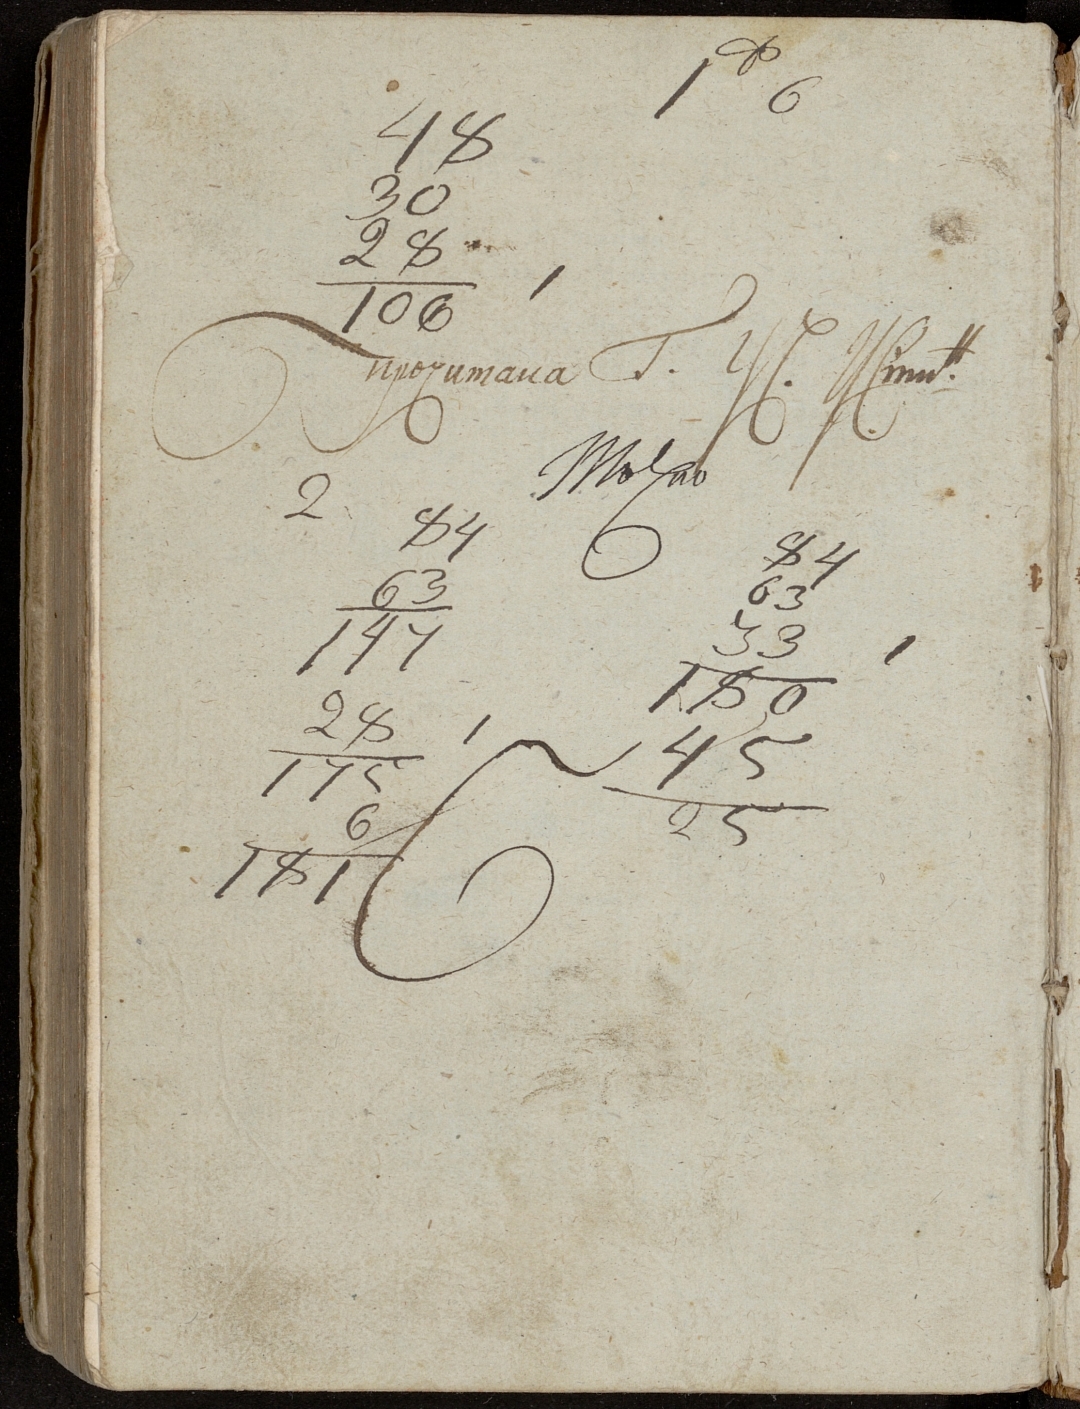 1 6
48
30
28
106 1
прочитана Г.
2
84
63
147
28 1
175
6
181
84
63
33 1
180
45
25